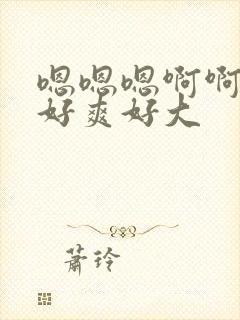 嗯嗯嗯啊啊
好爽好大
萧玲